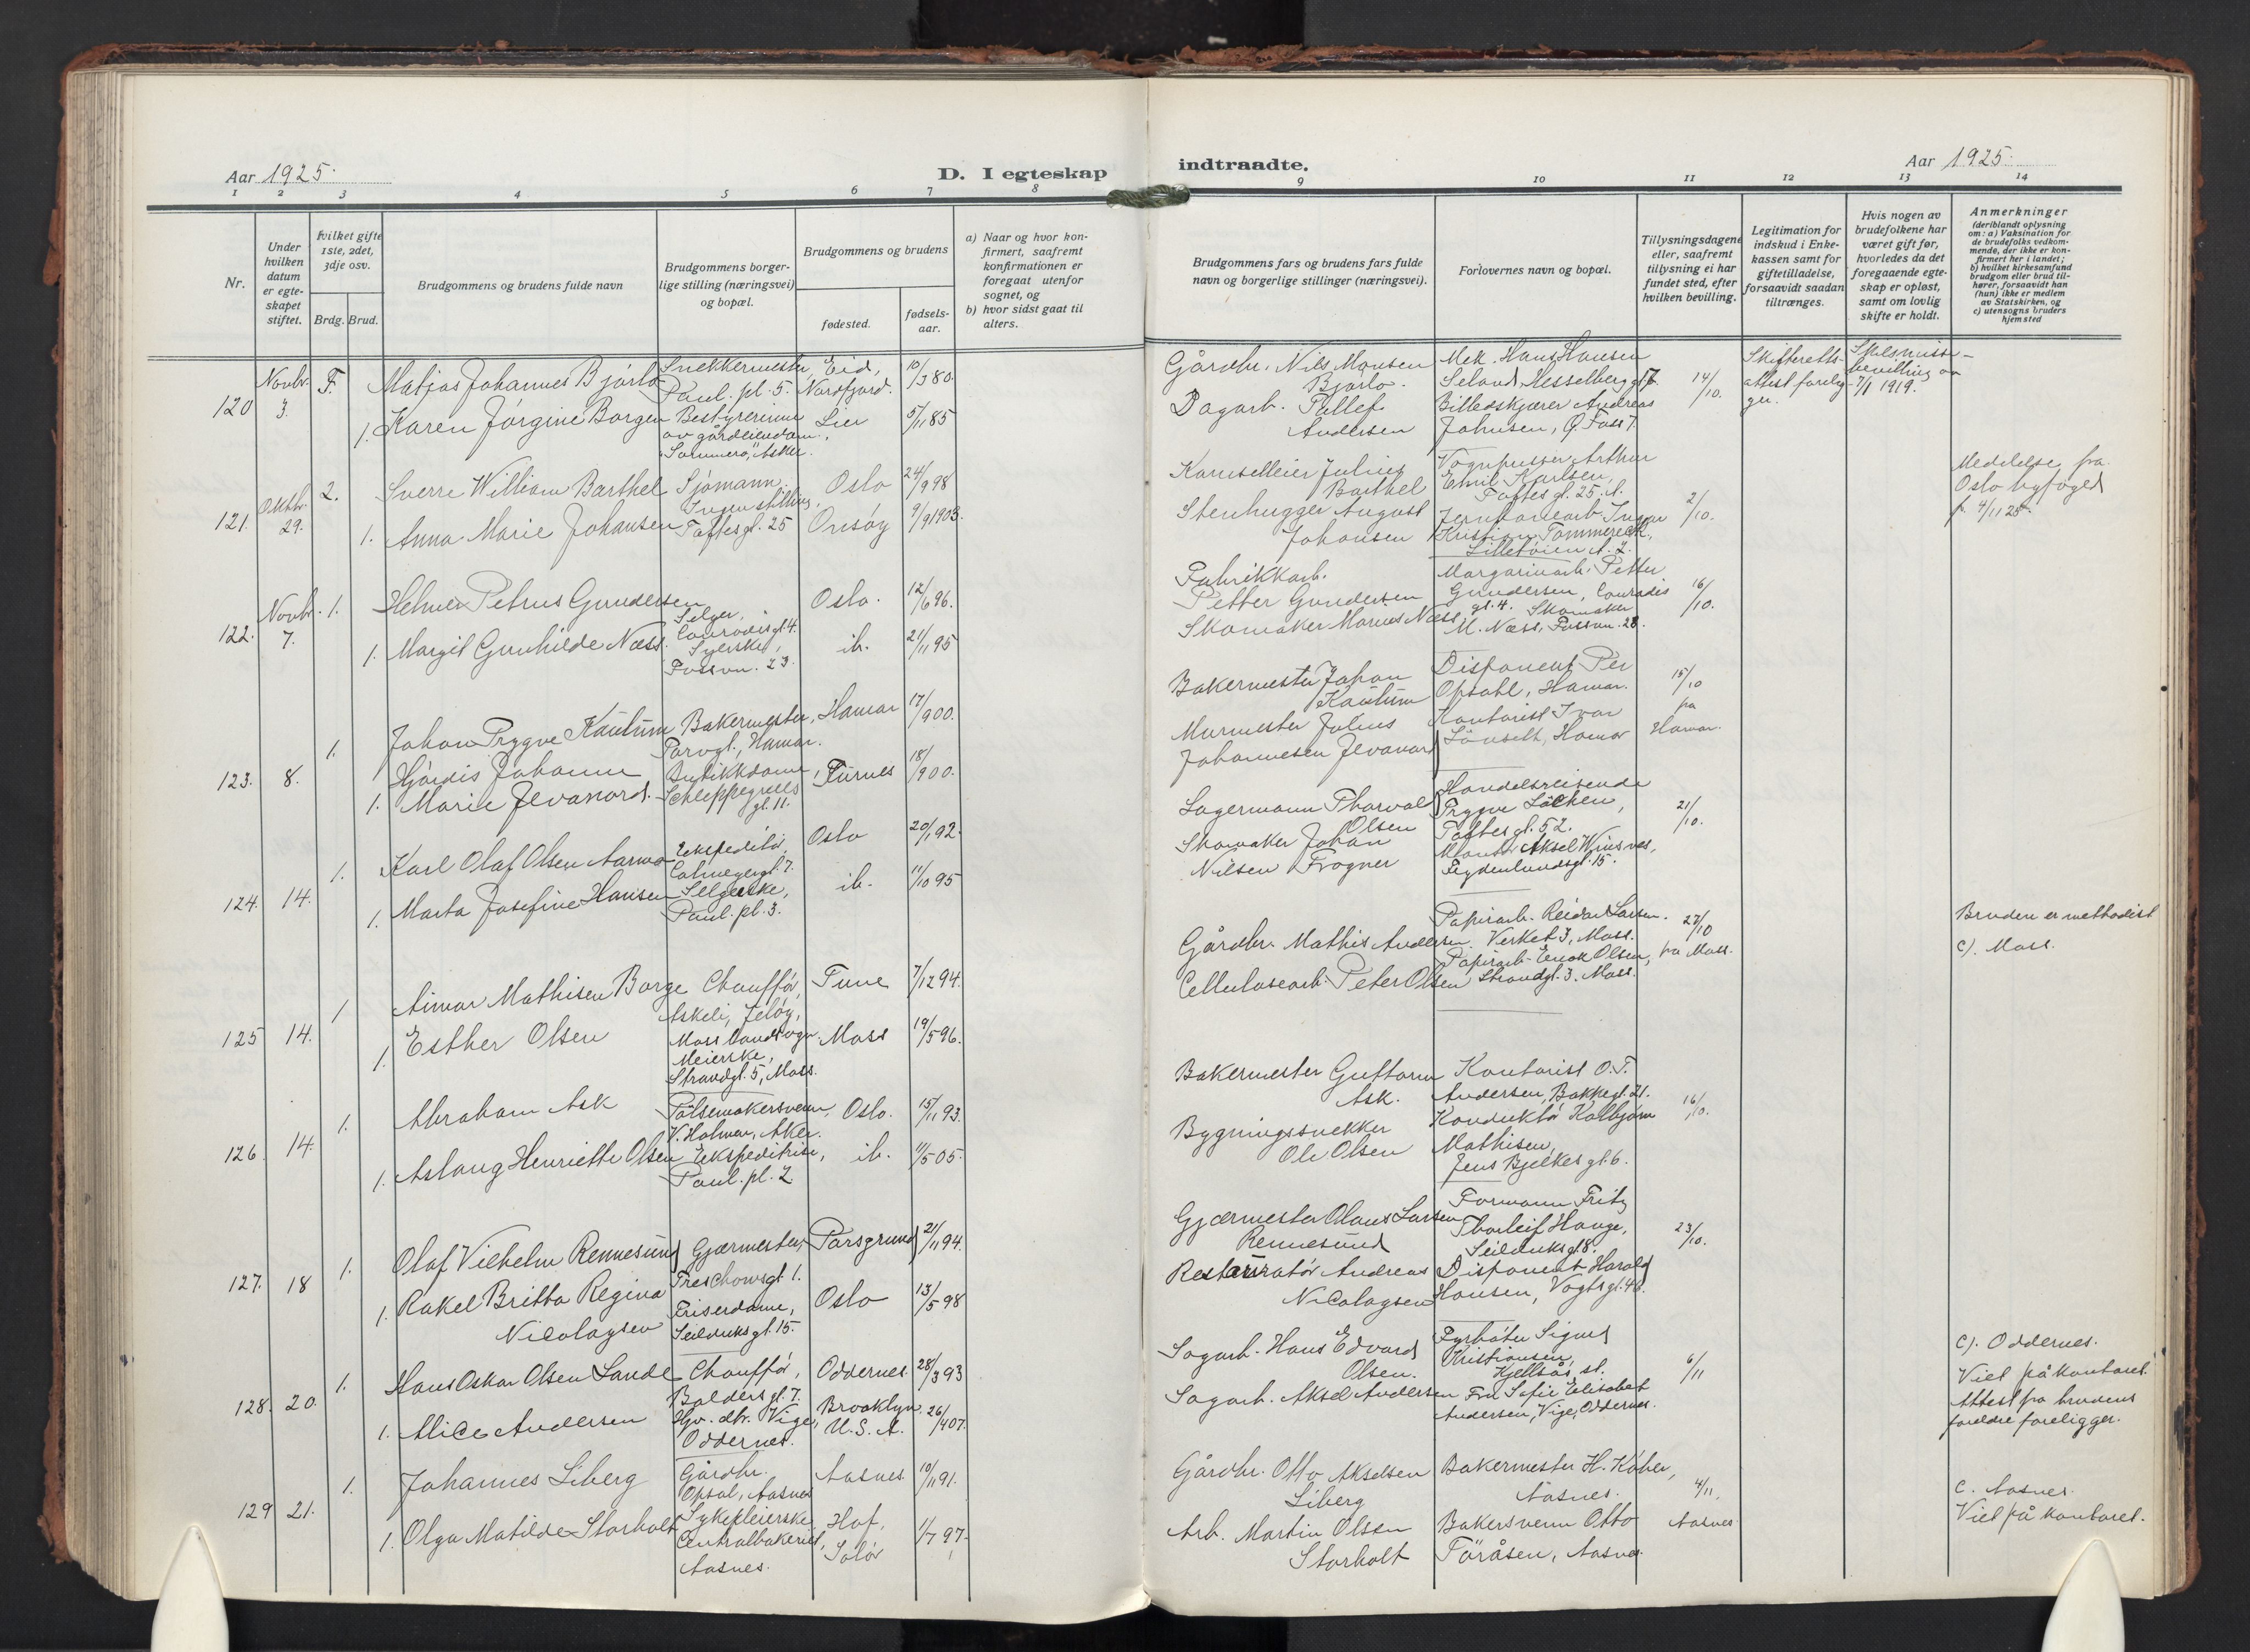 Aar 1925.
D. I egteskap
1 2 3 4 5 6 7 8
Nr.
Under hvilken datum er egteskapet stiftet.
hvilket gifte 1ste, 2det, 3dje osv.
Brdg. Brud.
Brudgommens og brudens fulde navn
Brudgommens borgerlige stilling (næringsvei) og bopæl.
Brudgommens og brudens
fødested.
fødselsaar.
a) Naar og hvor konfirmert, saafremt konfirmationen er foregaat utenfor sognet, og
b) hvor sidst gaat til alters.
120 Novbr. 3. F. Matjas Johannes Bjørlo Snekkermester, Paul. pl. 5. Eid, Nordfjord. 10/3 80.
1. Karen Jørgine Borgen Bestyrerinne av gårdeiendom, "Sommero", Asker. Lier 5/11 85
121. Oktbr. 29. 2. Sverre William Barthel Sjømann. Oslo 24/9 98
1. Anna Marie Johansen Ingen stilling, Toftes gt. 25 Onsøy 9/9 1903.
122. Novbr. 7. 1. Helmer Petrus Gundersen Selger, Conradis gt. 4. Oslo. 12/6 96.
1. Margit Gunhilde Næss. Syerske, Fossvn. 23. ib. 21/11 95
123. 8. 1. Johan Trygve Kautum Bakermester, Torvgt., Hamar. Hamar 17/ 900.
1. Hjørdis Johanne Marie Jevanord. Butikkdame, Schleppegrells gt. 11. Furnes 18/ 900.
124. 14. 1. Karl Olaf Olsen Aarmo Ekspeditør, Calmeyergt. 7. Oslo 20/1 92.
1. Marta Josefine Hansen Selgerske, Paul. pl. 3. ib. 11/10 95
125 14. 1 Aimar Mathisen Borge Chauffør, Askeli, Jeløy, Moss landsogn. Tune 7/12 94.
1. Esther Olsen Meierske, Strandgt. 5, Moss. Moss 19/5 96.
126. 14. 1. Abraham Ask Pølsemakersvenn, V. Holmen, Aker. Oslo. 15/11 93.
1. Aslaug Henriette Olsen Ekspeditrise, Paul. pl. 2. ib. 11/5 05.
127. 18 1. Olaf Vilhelm Rennesund Gjærmester, Treschowsgt. 1. Porsgrund 21/11 94.
1. Rakel Britta Regina Nicolaysen Friserdame, Seilduksgt. 15. Oslo 13/5 98
128. 20. 1. Hans Oskar Olsen Sande Chauffør, Balders gt. 7. Oddernes. 28/3 93
1. Alice Andersen Gv. dtr. Vige, Oddernes. Brooklyn. U. S. A. 26/4 07.
129 21. 1. Johannes Liberg Gårdbr. Opsal, Aasnes Aasnes. 10/11 91.
1. Olga Matilde Storholt Sykepleierske, Centralbakeriet, Aasnes. Hof, Solør 1/7 97.
indtraadte.
Aar 1925.
9 10 11 12 13 14
Brudgommens fars og brudens fars fulde navn og borgerlige stillinger (næringsvei).
Forlovernes navn og bopæl.
Tillysningsdagene eller, saafremt tillysning ei har fundet sted, efter hvilken bevilling.
Legitimation for indskud i Enkekassen samt for giftetilladelse, forsaavidt saadan tiltrænges.
Hvis nogen av brudefolkene har været gift før, hvorledes da det foregaaende egteskap er opløst, samt om lovlig skifte er holdt.
Anmerkninger (deriblandt oplysning om: a) Vaksination for de brudefolks vedkommende, der ikke er konfirmert her i landet; b) hvilket kirkesamfund brudgom eller brud tilhører, forsaavidt han (hun) ikke er medlem av Statskirken, og c) utensogns bruders hjemsted
Gårdbr. Nils Monsen Bjørlo. Mek. Hans Hansen Seland, Hesselberg gt. 7. 14/10. Skifteretts-attest foreligger. Skilsmissebevilling av 7/1 1919.
Dagarb. Tellef Andersen Billedskjærer Andreas Johnsen, Ø. Foss 7.
Kanselleier Julius Barthel Vognpusser Arthur Emil Karlsen, Toftes gt. 25. 2/10. Meddelelse fra Oslo byfoged fr. 4/11 25.
Stenhugger August Johansen Jernbanearb. Ingar Kristian Tommereek, Lilletøien A. 2.
Fabrikkarb. Petter Gundersen Margarinarb. Petter Gundersen, Conradis gt. 4. 16/10.
Skomaker Marius Næss Skomaker M. Næss, Fossvn. 23.
Bakermester Johan Kautum Disponent Per Opsahl, Hamar. 15/10 fra Hamar.
Murmester Julius Johannesen Jevanord Kontorist Ivar Lønseth, Hamar
Lagermann Thorvald Olsen Handelsreisende Trygve Løchen, Toftes gt. 52. 21/10.
Skomaker Johan Nilsen Frogner Montør Aksel Winsnes, Frydenlundsgt. 15.
Gårdbr. Mathis Andersen. Papirarb. Reidar Larsen. Verket 3, Moss. 27/10 fra Moss. Bruden er methodist
Cellulosearb. Peter Olsen Papirarb. Enok Olsen, Strandgt. 3. Moss. c). Moss.
Bakermester Guttorm Ask. Kontorist O. T. Andersen, Bakkegt. 21. 16/10.
Bygningssnekker Ole Olsen Konduktør Kolbjørn Mathisen, Jens Bjelkes gt. 6.
Gjærmester Olaus Larsen Rennesund Formann Fritz Thorleif Hauge, Seilduksgt. 8. 23/10.
Restauratør Andreas Nicolaysen Disponent Harald Hansen, Vogts gt. 46.
Sagarb. Hans Edvard Olsen. Fyrbøter Sigurd Kristiansen, Kjellsås st. 6/11 c). Oddernes. Viet på kontoret.
Sagarb. Aksel Andersen Fru Sofie Elisabet Andersen, Vige, Oddernes. Attest fra brudens foreldre foreligger.
Gårdbr. Otto Akselsen Liberg Bakermester H. Køber, Aasnes. 4/11. Aasnes c. Aasnes. Viet på kontoret.
Arb. Martin Olsen Storholt Bakersvenn Otto Töråsen, Aasnes.